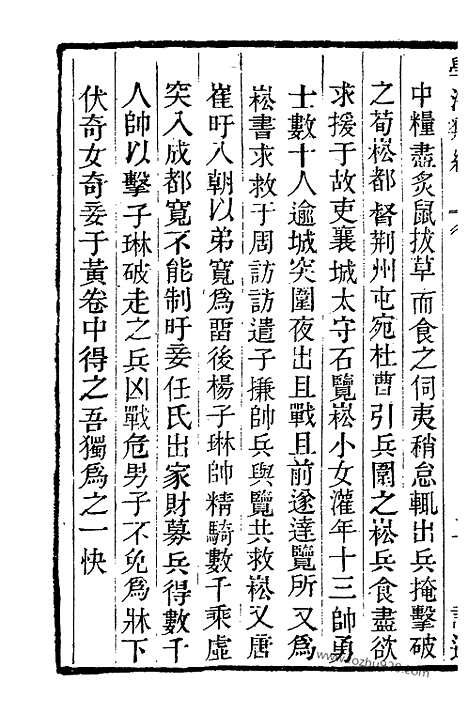 學海類編
中糧盡炙鼠拔草而食之伺夷稍怠輒出兵掩擊破
之荀崧都督荆州屯宛杜曾引兵圍之崧兵食盡欲
求援于故吏襄城太守石覽崧小女灌年十三帥勇
士數十人逾城突圍夜出且戰且前遂達覽所又為
崧書求救于周訪訪遣子撫帥兵與覽共救崧又唐
崔旰入朝以弟寬為畱後楊子琳帥精騎數千乘虛
突入成都寬不能制旰妾任氏出家財募兵得數千
人帥以擊子琳破走之兵凶戰危男子不免為牀下
伏奇女奇妾于黃卷中得之吾獨為之一快